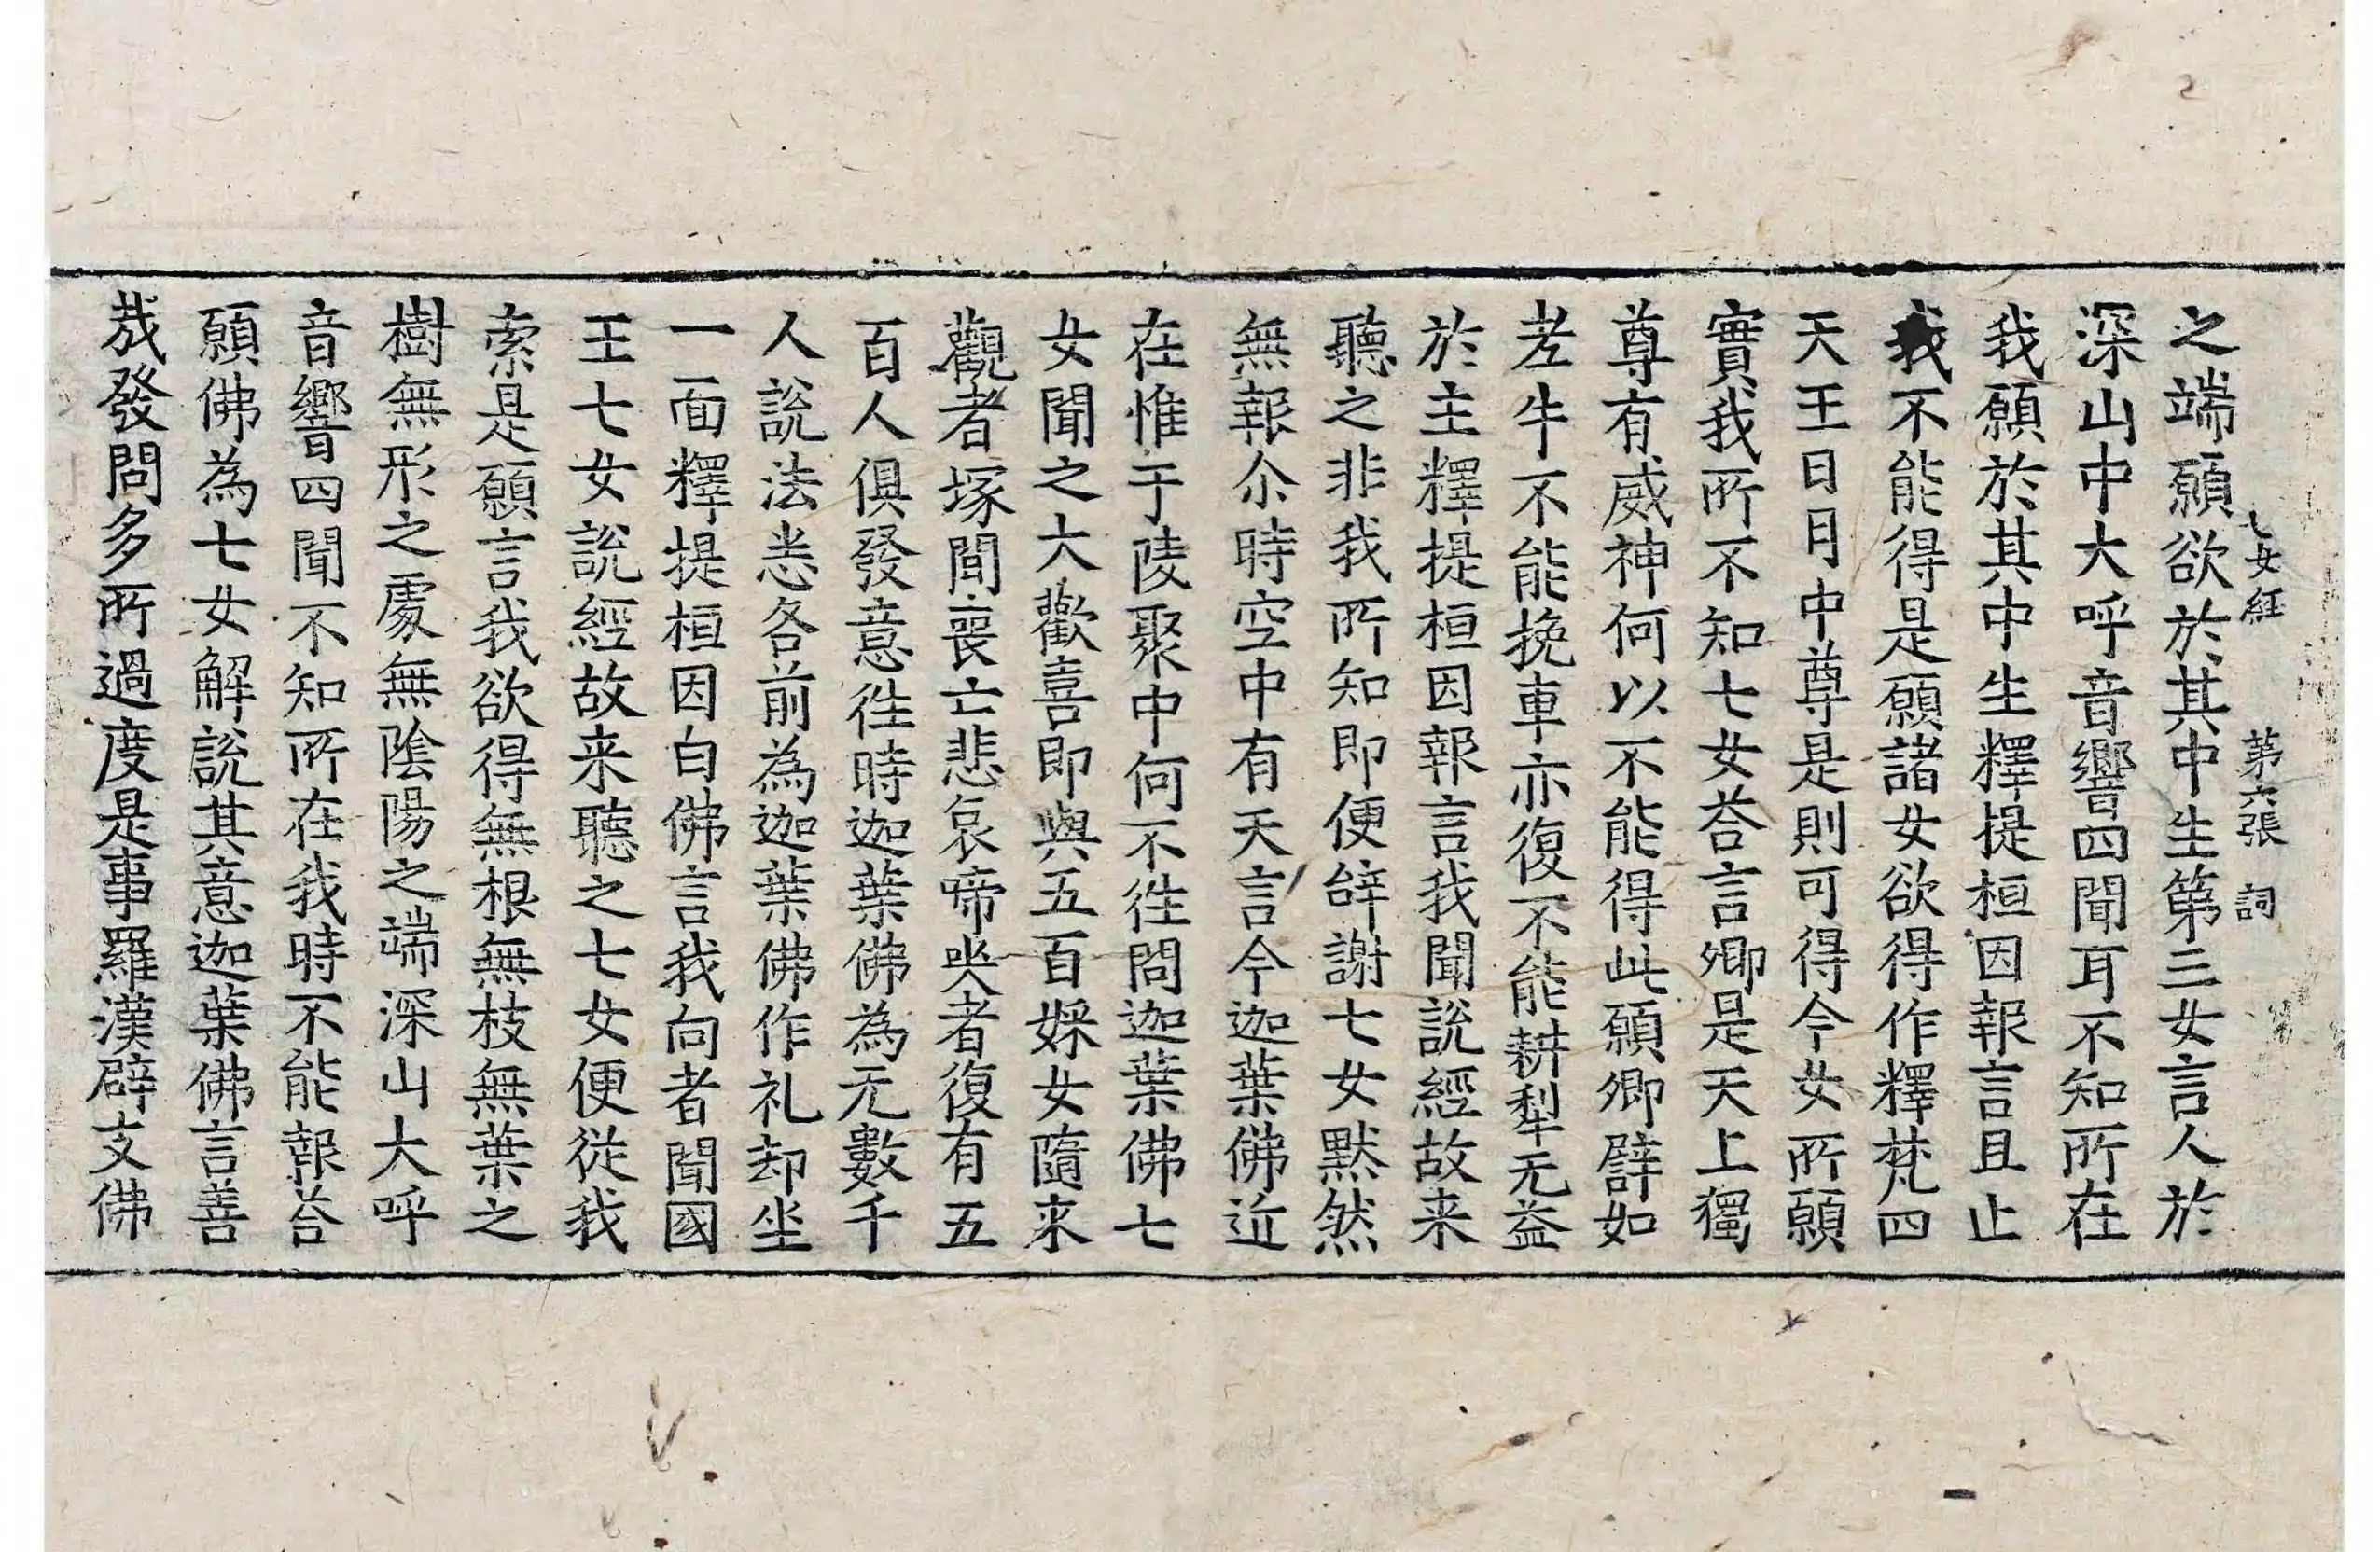 七女経　第六張　詞
之端願欲於其中生第三女言人於
深山中大呼音響四聞耳不知所在
我願於其中生釋提桓因報言且止
我不能得是願諸女欲得作釋梵四
天王日月中尊是則可得今女所願
實我所不知七女荅言卿是天上獨
尊有威神何以不能得此願卿譬如
老牛不能挽車亦復不能耕犁无益
於主釋提桓因報言我聞說經故来
聽之非我所知即便辝謝七女默然
無報尒時空中有天言今迦葉佛近
在惟于陵聚中何不徃問迦葉佛七
女聞之大歡喜即與五百婇女隨来
觀者塚間喪亡悲哀啼哭者復有五
百人俱發意徃時迦葉佛為无數千
人說法悉各前為迦葉佛作礼却坐
一面釋提桓因白佛言我向者聞國
王七女說經故来聽之七女便從我
索是願言我欲得無根無枝無葉之
樹無形之處無陰陽之端深山大呼
音響四聞不知所在我時不能報荅
願佛為七女解說其意迦葉佛言善
哉發問多所過度是事羅漢辟支佛